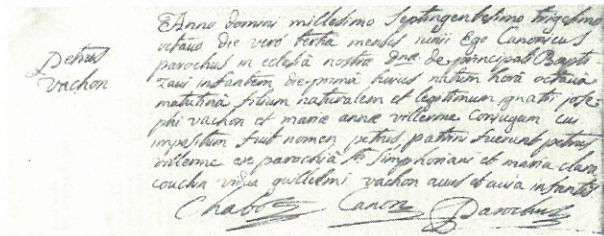 Petrus
Vachon
Anno domini millesimo septingentesimo trigesimo
octavo die vero tertia mensis iunii Ego Canonicus
parochus in eclesia nostræ dnæ de principali Bapti
zavi infantem die prima huius natum hora octava
matutina filium naturalem et legitimum ignatii jose
phi vachon et mariæ annæ villerme Conjugum cui
impositum fuit nomen petrus patrini fuerunt petrus
villerme ex parochia sti simphoriani et maria clara
couchin vidua guillelmi vachon avus et avia infantis
Chaboz Canon Parochus